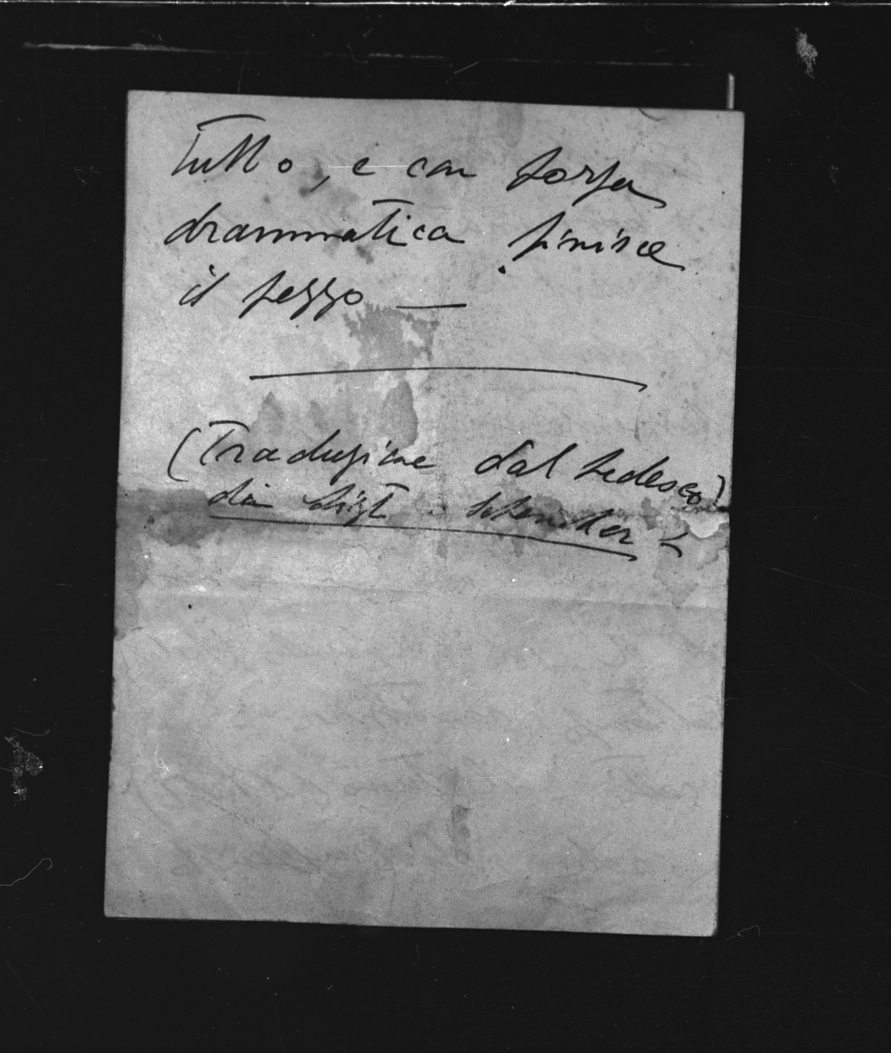 tutto, e con forza
drammatica finisce
il pezzo —
(Traduzione dal tedesco)